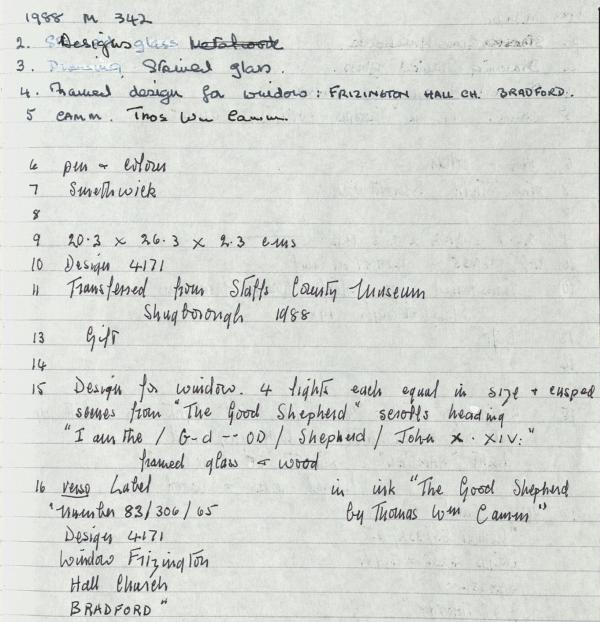 1988 M. 342
2. Designs glass
3. Drawing Stained glass.
4. Framed design for window: FRIZINGTON HALL CH. BRADFORD.
5 CAMM. Thos Wm Camm.
6 pen & colour
7 Smethwick
8
9 20.3 x 26.3 x 2.3 cms
10 Design 4171
11 Transferred from Staffs County Museum
Shugborough 1988
13 Gift
14
15 Design for window. 4 lights each equal in size & cusped
scenes from "The Good Shepherd" scrolls heading
"I am the / G-d -- OD / Shepherd / John X. XIV:"
framed glass & wood
16 verso Label in ink "The Good Shepherd
"number 83/306/65 by Thomas Wm Camm"
Design 4171
Window Frizington
Hall Church
BRADFORD"